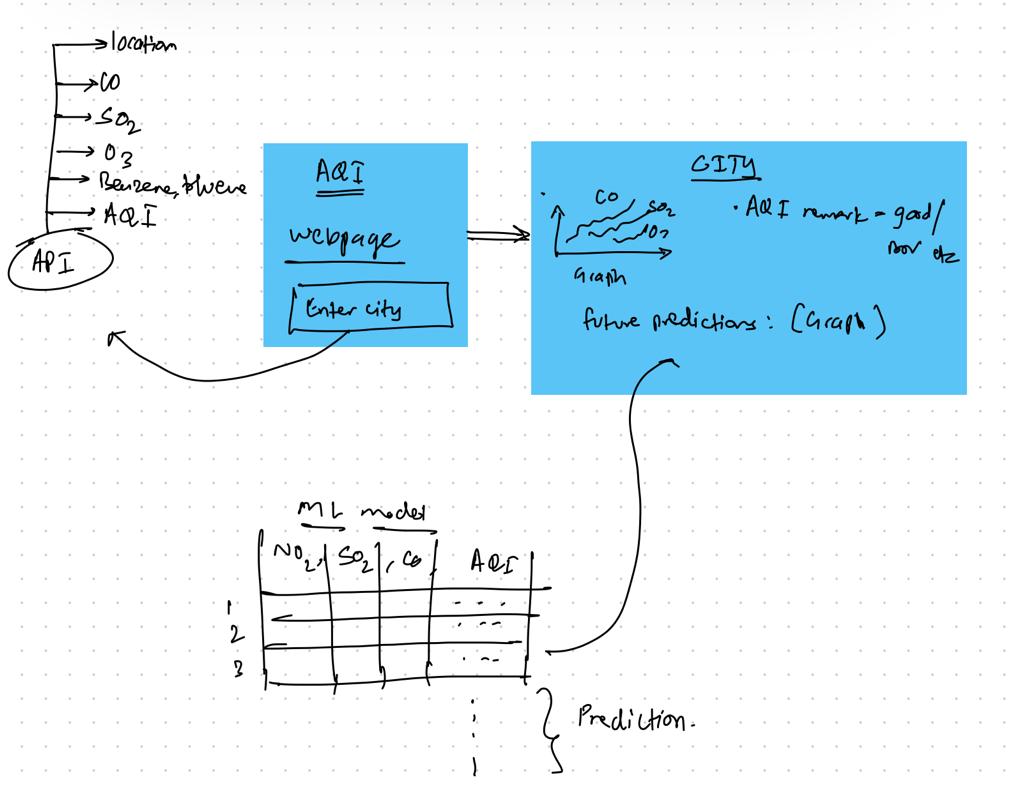 location
CO
SO2
O3
Benzene, toluene
AQI
API
AQI
webpage
Enter city
CITY
CO
SO2
O3
Graph
· AQI remark = good/
poor etc
future predictions: [Graph]
ML model
NO2, SO2, CO, AQI
1
2
3
Prediction.